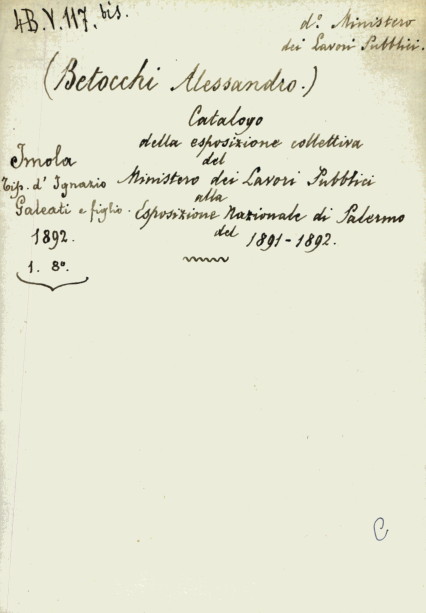 4B.V.117.bis.
d.º Ministero
dei Lavori Pubblici.
(Betocchi Alessandro.)
Catalogo
della esposizione collettiva
del
Ministero dei Lavori Pubblici
alla
Esposizione Nazionale di Palermo
del 1891-1892.
Imola
Tip. d' Ignazio
Galeati e figlio.
1892.
1. 8º.
C